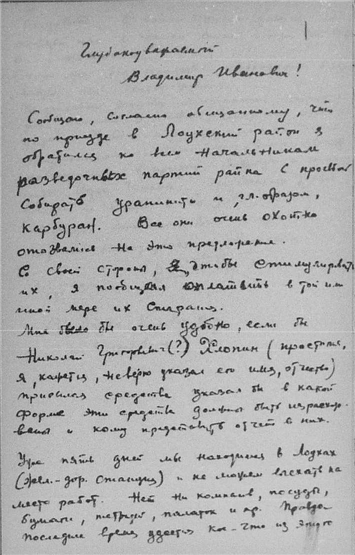 Глубокоуважаемый
Владимир Иванович!
Сообщаю, согласно обещанному, что
по приезде в Лоухский район я
обратился ко всем начальникам
разведочных партий района с просьбой
собирать уранинит и, гл. образом,
карбуран. Все они очень охотно
отозвались на это предложение.
Со своей стороны, чтобы стимулировать
их, я пообещал оплатить в той или
иной мере их старания.
Мне было бы очень удобно, если бы
Николай Григорьевич (?) Хлопин (простите,
я, кажется, неверно указал его имя, отчество)
прислал средства указал бы в какой
форме эти средства должны быть израсходо-
ваны и кому представить отчёт в них.
Уже пять дней мы находимся в Лоухах
(жел.-дор. станция) и не можем выехать на
место работ. Нет ни компаса, посуды,
бумаги, тетрадей, палаток и пр. Правда
последнее время удается кое-что из этого